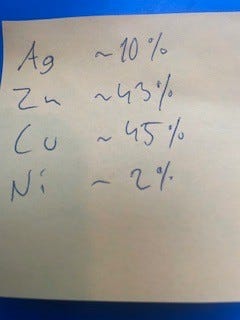 Ag ~10%
Zn ~43%
Cu ~45%
Ni ~2%